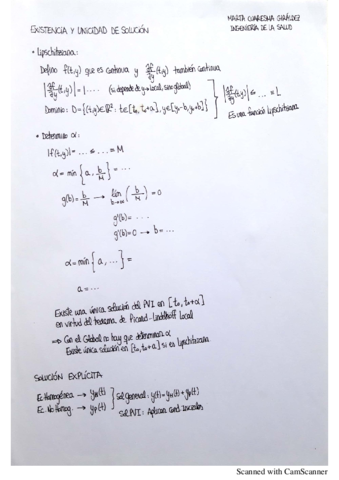 EXISTENCIA Y UNICIDAD DE SOLUCIÓN
MARTA CUARESMA
INGENIERÍA DE LA SALUD
• Lipschitziana:
Defino f(t,y) que es continua y ∂f/∂y (t,y) también continua
|∂f/∂y (t,y)| = |.... (si depende de y → local, sino global)
Dominio: D = {(t,y) ∈ ℝ² : t ∈ [t₀, t₀+a], y ∈ [y₀-b, y₀+b]}
|∂f/∂y (t,y)| ≤ ... = L
Es una función Lipschitziana
• Determino α:
|f(t,y)| = .... ≤ .... ≤ = M
α = min {a, b/M} = ...
g(b) = b/M → lim b→∞ (b/M) = 0
g'(b) = ...
g'(b) = 0 → b = ...
α = min {a, ...} =
a = ...
Existe una única solución del PVI en [t₀, t₀+α]
en virtud del teorema de Picard-Lindelhöff Local
⇒ Con el Global no hay que determinar α
Existe única solución en [t₀, t₀+a] si es Lipschitziana
SOLUCIÓN EXPLÍCITA
Ec. Homogénea → yH(t)
Ec. No Homog. → yp(t)
Sol general: y(t) = yH(t) + yp(t)
Sol PVI: Aplican cond iniciales
Scanned with CamScanner